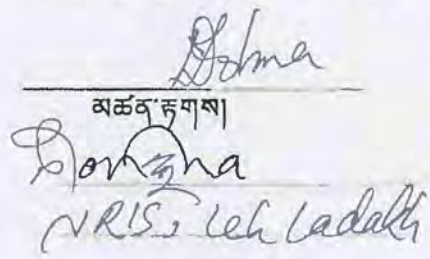 Dolma
མཚན་རྟགས།
NRIS, Leh Ladakh